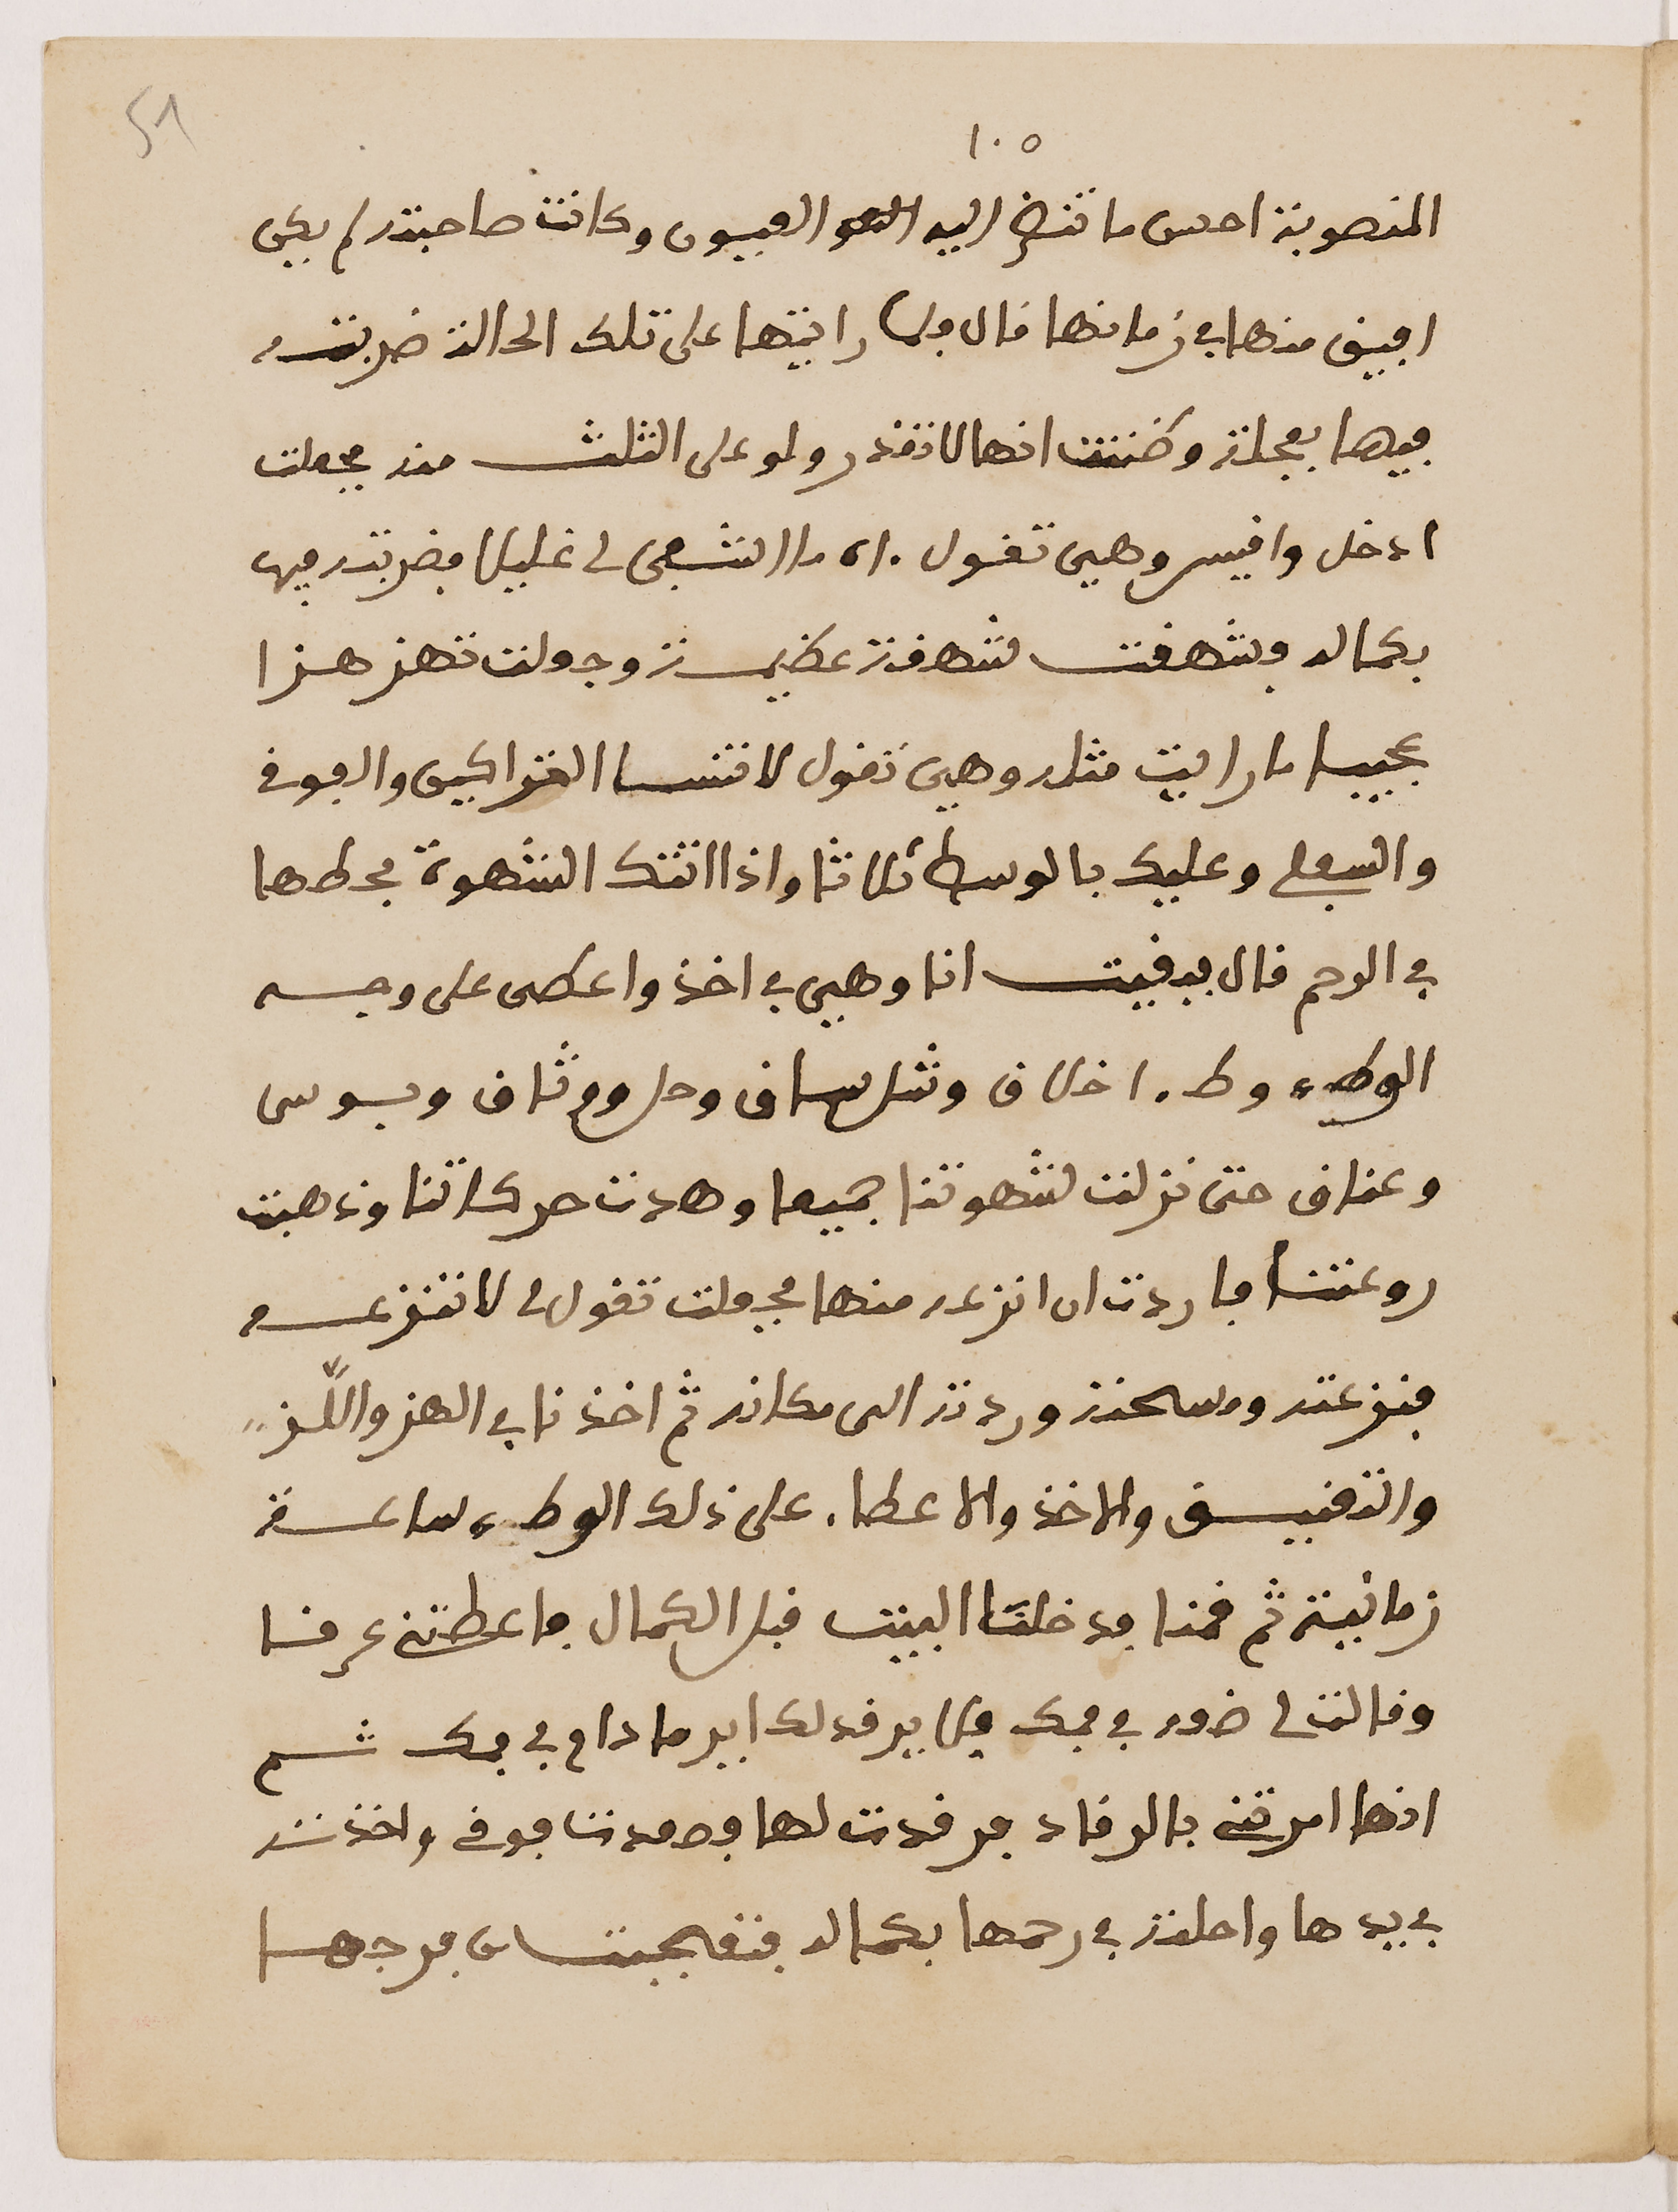 51
١٠٥
المنصوبة احسن ما تنظر اليه العيون وكانت صاحبته لم يكن
اڢيق منها ڢي زمانها ڧال ڢلما رايتها على تلك الحالة ضربته
ڢيها بعجلة وظننت انها لا تڧدر ولو على الثلث منه ڢجعلت
ادخل واڧيس وهي تڧول ما تشڢى لي غليلا ڢضربته ڢيها
بكماله ڢشهڧت شهڧة عظيمة وجعلت تهز هزا
عجيبا ما رايت مثله وهي تڧول لا تنسا التراكين والڢوڧي
والسڢلي وعليك بالوسط ثلاثا واذا اتتك الشهوة ڢحطها
ڢي الرحم ڧال ڢبڧيت انا وهي ڢي اخذ واعطى على وجه
الوطء وطء اخلاڧ وشل ساڧ وحل وثاڧ وبوس
وعناڧ حتى نزلت شهوتنا جميعا وهدت حركاتنا وذهبت
روعتنا ڢاردت ان انزعه منها ڢجعلت تڧول لي لا تنزعه
ڢنزعته ومسحته وردته الى مكانه ثم اخذنا ڢي الهز واللز
والتدڧيڧ والاخذ والاعطاء على ذلك الوطء ساعة
زمانية ثم ڧمنا ڢدخلنا البيت ڧبل الكمال ڢاعطتني عرڧا
وڧالت لي ضعه ڢي ڢمك ڢلا يرڧد لك اير ما دام ڢي ڢمك ثم
انها امرتني بالرڧاد ڢرڧدت لها ڢصعدت ڢوڧي واخذته
ڢي يدها وادخلته ڢي رحمها بكماله ڢتعجبت من ڢرجها